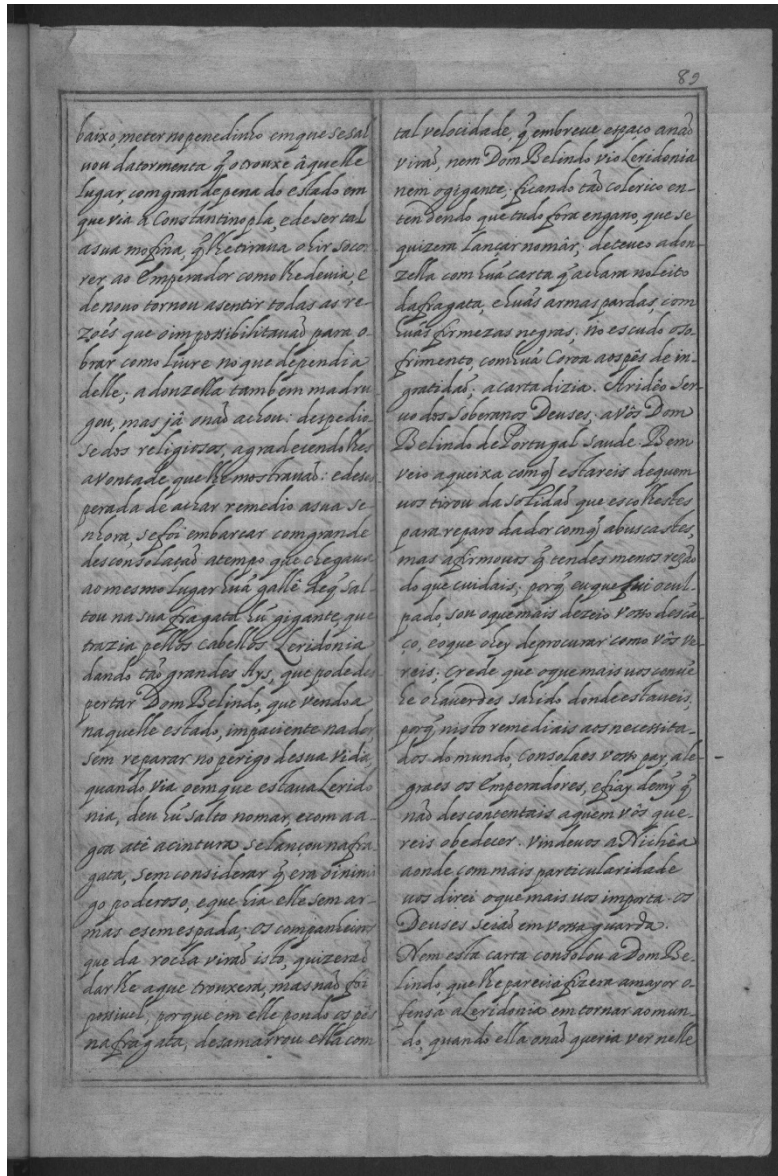 89
baixo, meter no penedinho em que se sal
uou da tormenta q̃ o trouxe âquelle
lugar, com grande pena do estado em
que via a Constantinopla, e de ser tal
a sua mofina, q̃ lhe tiraua o hir socor
rer ao Emperador como lhe deuia, e
de nouo tornou a sentir todas as re-
zoẽs que o impossibilitauaõ para o-
brar como liure no que dependia
delle; a donzella tambem madru
gou, mas jâ o naõ achou: despedio-
se dos religiosos, agradecendo lhes
a vontade que lhe mostrauaõ: e deses
perada de achar remedio a sua se-
nhora, se foi embarcar com grande
desconsolaçaõ a tempo que chegaua
ao mesmo lugar hũa gallê de q̃ sal-
tou na sua fragata hũ gigante, que
trazia pellos cabellos Leridonia
dando taõ grandes Ays, que pode des
pertar Dom Belindo, que vendo a
naquelle estado, impaciente na dor
sem reparar no perigo de sua vida
quando via o em que estaua Lerido
nia, deu hũ salto no mar, e com a a-
goa atê a cintura se lançou na fra
gata, sem considerar q̃ era o inimi
go poderoso, e que hia elle sem ar-
mas e sem espada; os companheiros
que da rocha viraõ isto, quizeraõ
dar lhe a que trouxera, mas naõ foi
possiuel, porque em elle pondo os pês
na fragata, desamarrou ella com
tal velocidade, q̃ em breue espaço a naõ
viraõ, nem Dom Belindo vio Leridonia
nem o gigante; ficando taõ colerico en-
tendendo que tudo fora engano, que se
quizera lançar no mâr; deteueo a don-
zella com hũa carta q̃ achara no leito
da fragata, e hũas armas pardas, com
hũas firmezas negras; no escudo o so-
frimento, com hũa Coroa aos pês de in-
gratidaõ; a carta dizia. Aridêo ser-
uo dos soberanos Deuses; a vôs Dom
Belindo de Portugal saude. Bem
veio a queixa com q̃ estareis de quem
uos tirou da solidaõ que escolhestes
para reparo da dor com q̃ a buscastes,
mas afirmouos q̃ tendes menos rezaõ
do que cuidais; porq̃ eu que fui o cul-
pado, sou o que mais dezeio vosso desca-
co, e o que o hey de procurar como vôs ve-
reis; Crede que o que mais uos conue
he o hauerdes sahido donde estaueis,
porq̃ nisto remediais aos necessita-
dos do mundo, consolaes vosso pay, ale-
graes os Emperadores, e fiay de my q̃
naõ descontentais a quem vôs que-
reis obedecer. Vindeuos a Nichêa
aonde com mais particularidade
uos direi o que mais uos importa. os
Deuses seiaõ em vossa guarda.
Nem esta carta consolou a Dom Be-
lindo, que lhe parecia fizera a mayor o-
fensa a Leridonia em tornar ao mun-
do, quando ella o naõ queria ver nelle